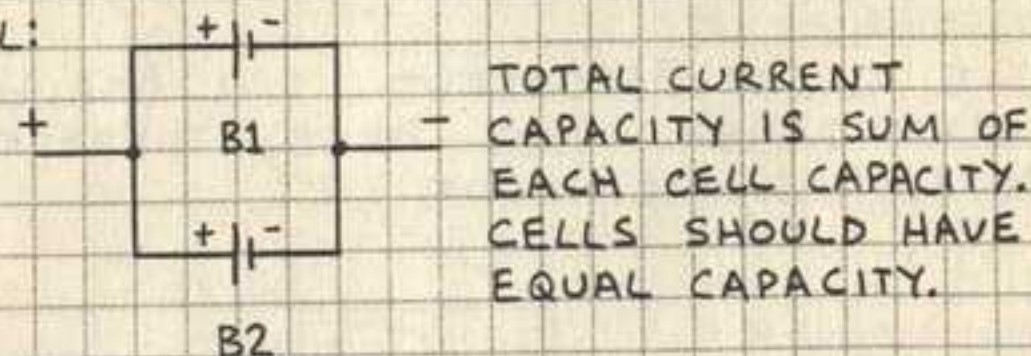 L:
+ -
+ B1 -
+ -
B2
TOTAL CURRENT
CAPACITY IS SUM OF
EACH CELL CAPACITY.
CELLS SHOULD HAVE
EQUAL CAPACITY.